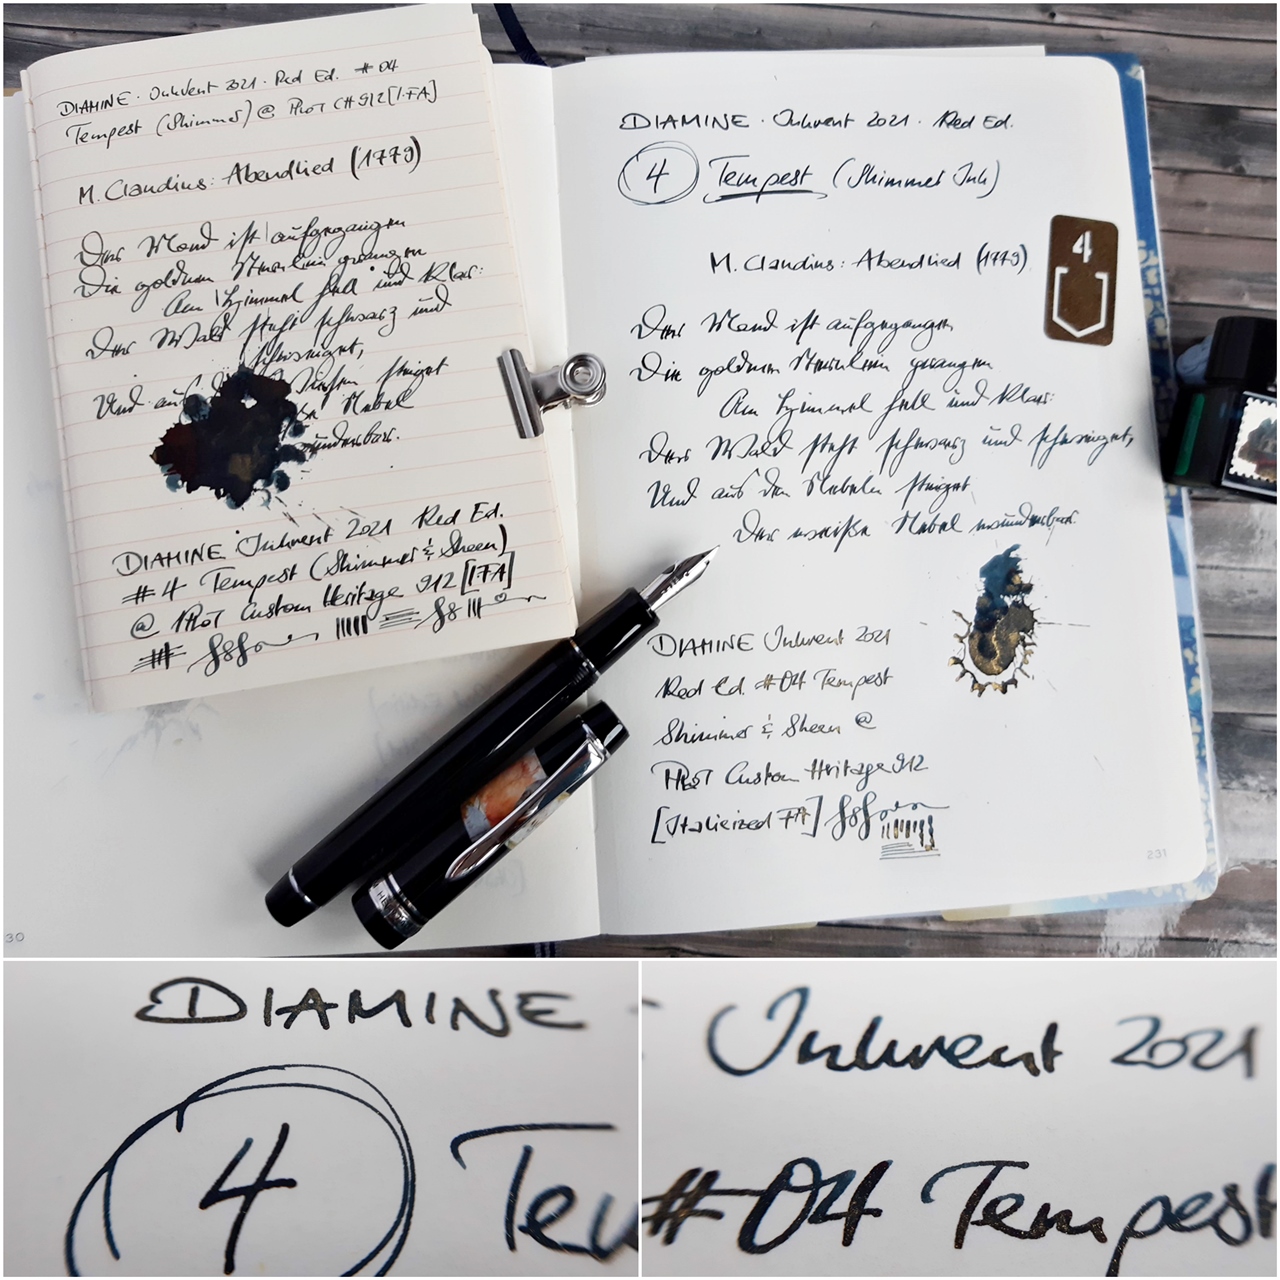 DIAMINE · Inkvent 2021 · Red Ed. #04
Tempest (Shimmer) @ PILOT CH 912 [I.FA]
M. Claudius: Abendlied (1779)
Der Mond ist aufgegangen
Die goldnen Sternlein prangen
Am Himmel hell und klar:
Der Wald steht schwarz und
schweiget,
Und aus steiget
Nebel
wunderbar.
DIAMINE Inkvent 2021 Red Ed.
#4 Tempest (Shimmer & Sheen)
@ PILOT Custom Heritage 912 [I.FA]
DIAMINE · Inkvent 2021 · Red Ed.
4 Tempest (Shimmer Ink)
M. Claudius: Abendlied (1779)
Der Mond ist aufgegangen
Die goldnen Sternlein prangen
Am Himmel hell und klar:
Der Wald steht schwarz und schweiget,
Und aus den Nebeln steiget
Der weiße Nebel wunderbar.
DIAMINE Inkvent 2021
Red Ed. #04 Tempest
Shimmer & Sheen @
PILOT Custom Heritage 912
[Italicized FA]
4
231
30
DIAMINE
4 Te
Inkvent 2021
#04 Tempest